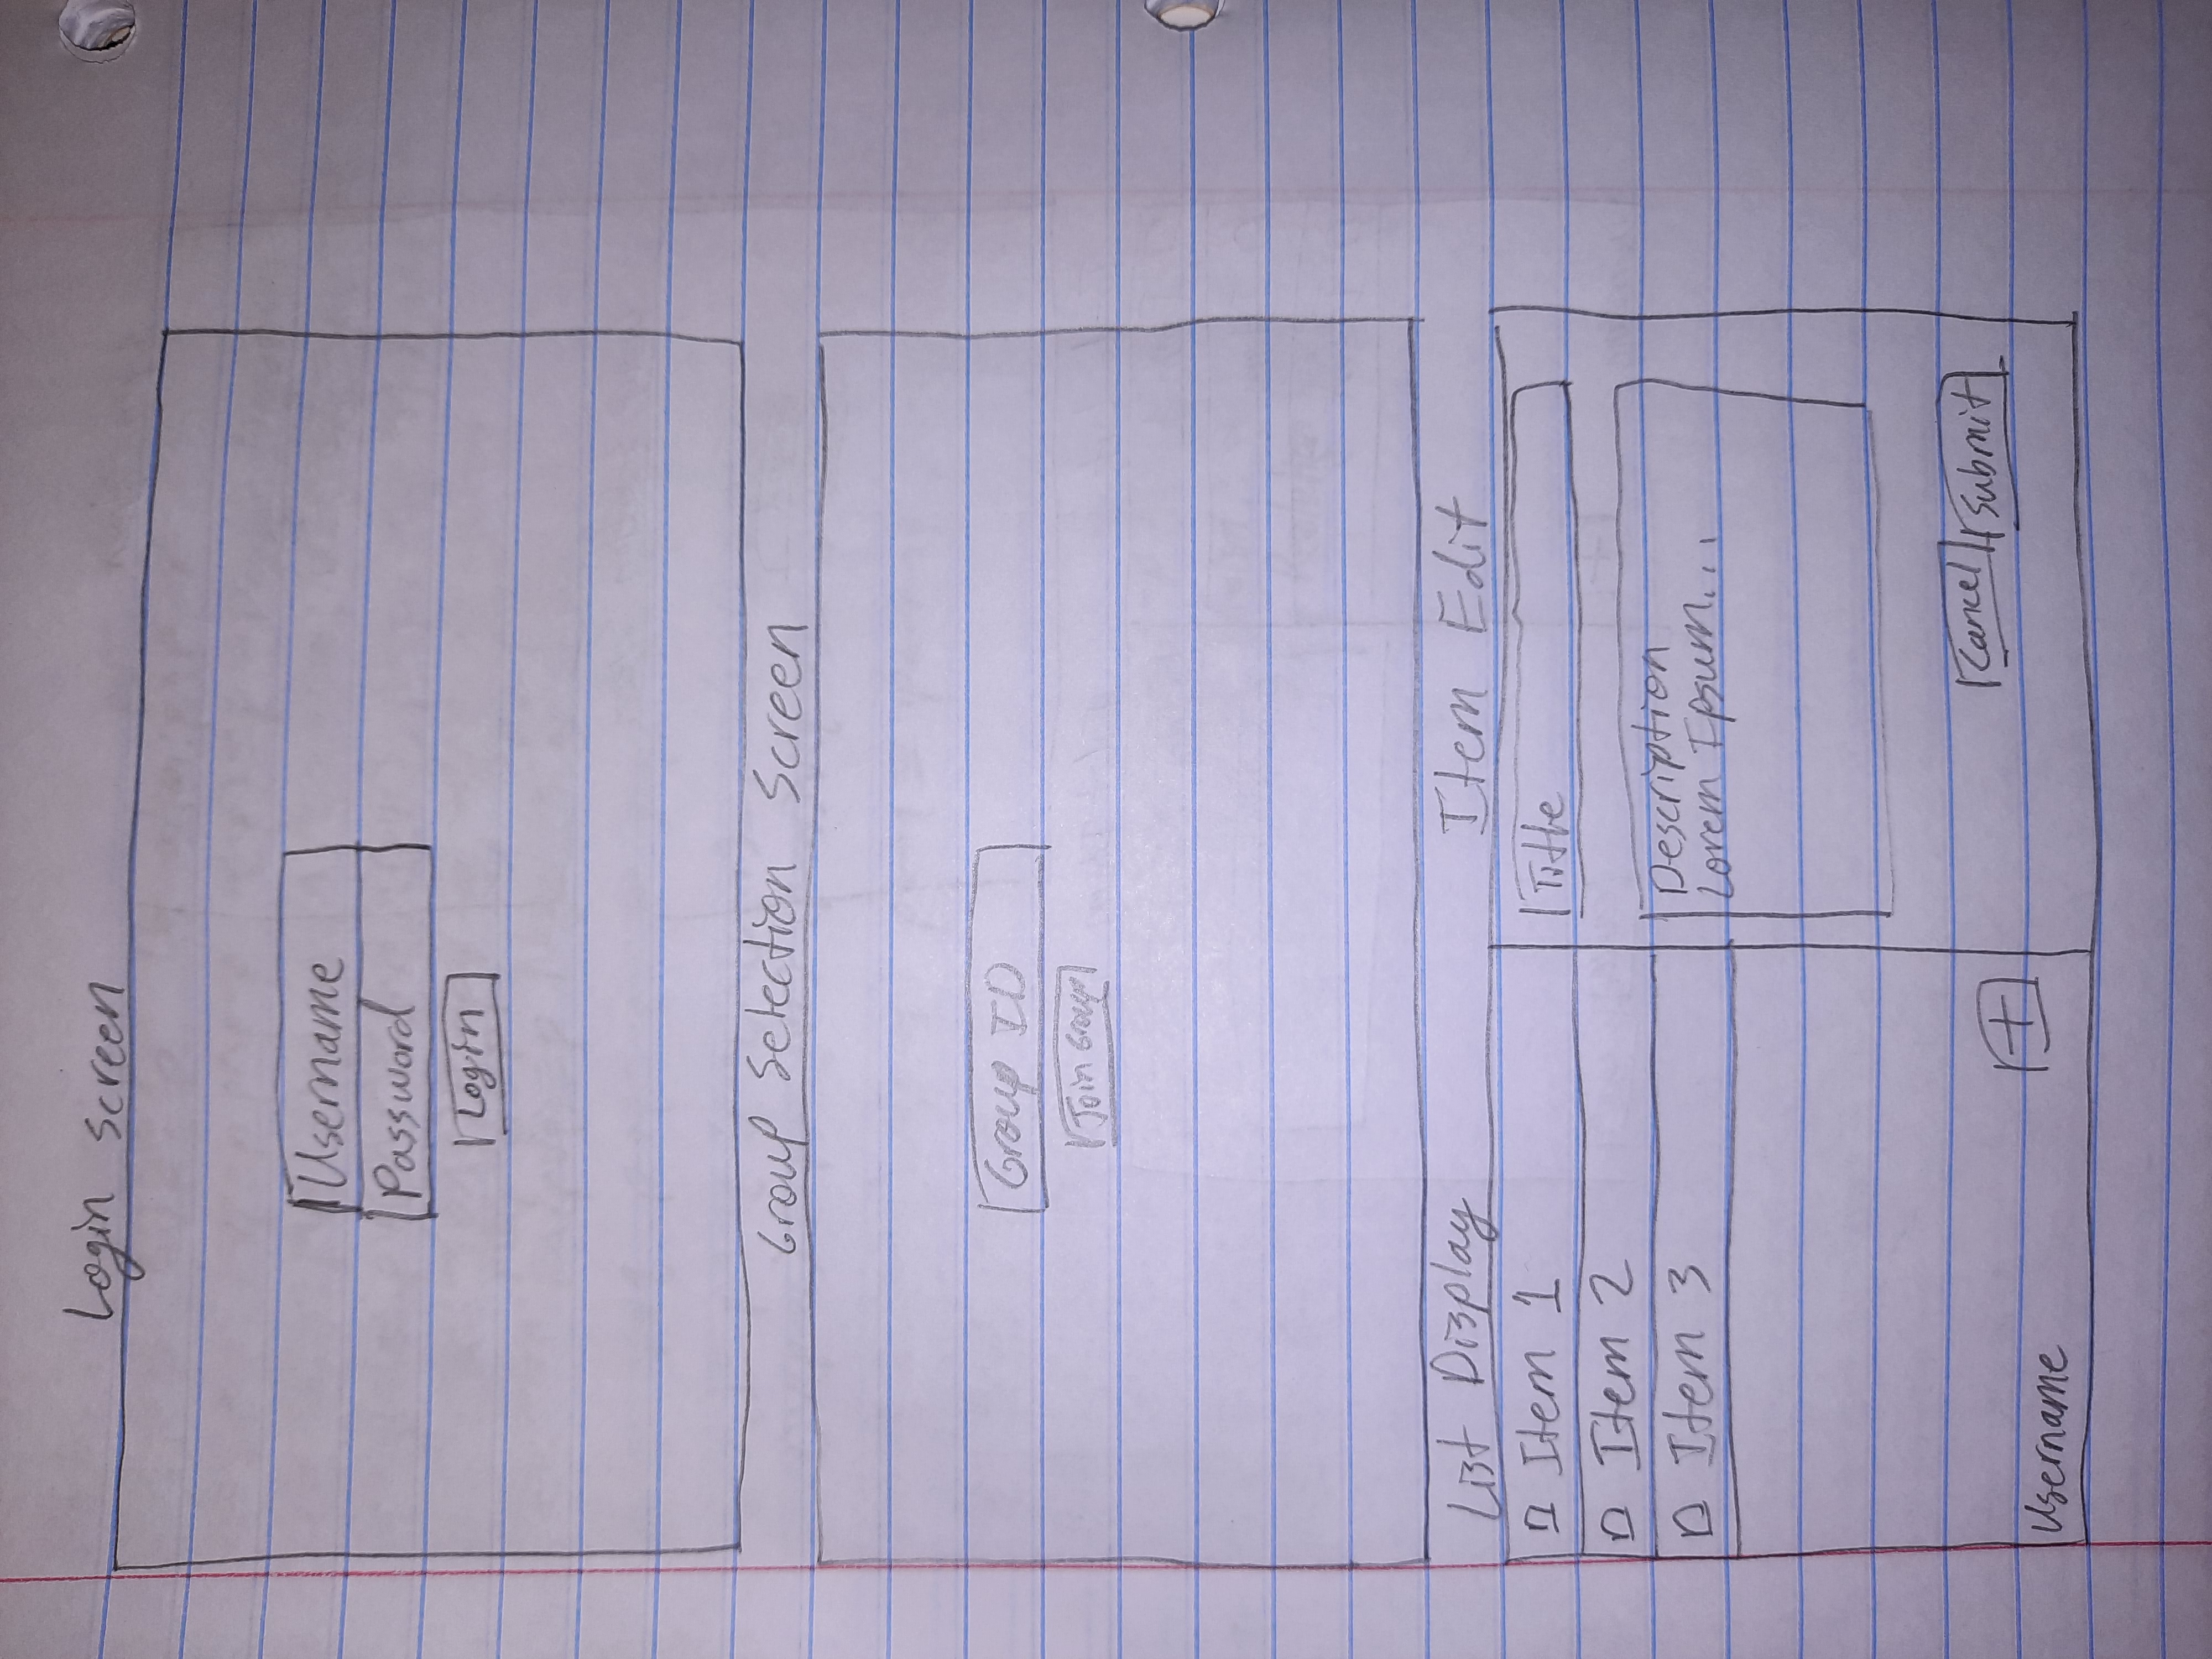 Login Screen
Username
Password
Login
Group Selection Screen
Group ID
Join Group
List Display
Item 1
Item 2
Item 3
+
Username
Item Edit
Title
Description
Lorem Ipsum...
Cancel
Submit